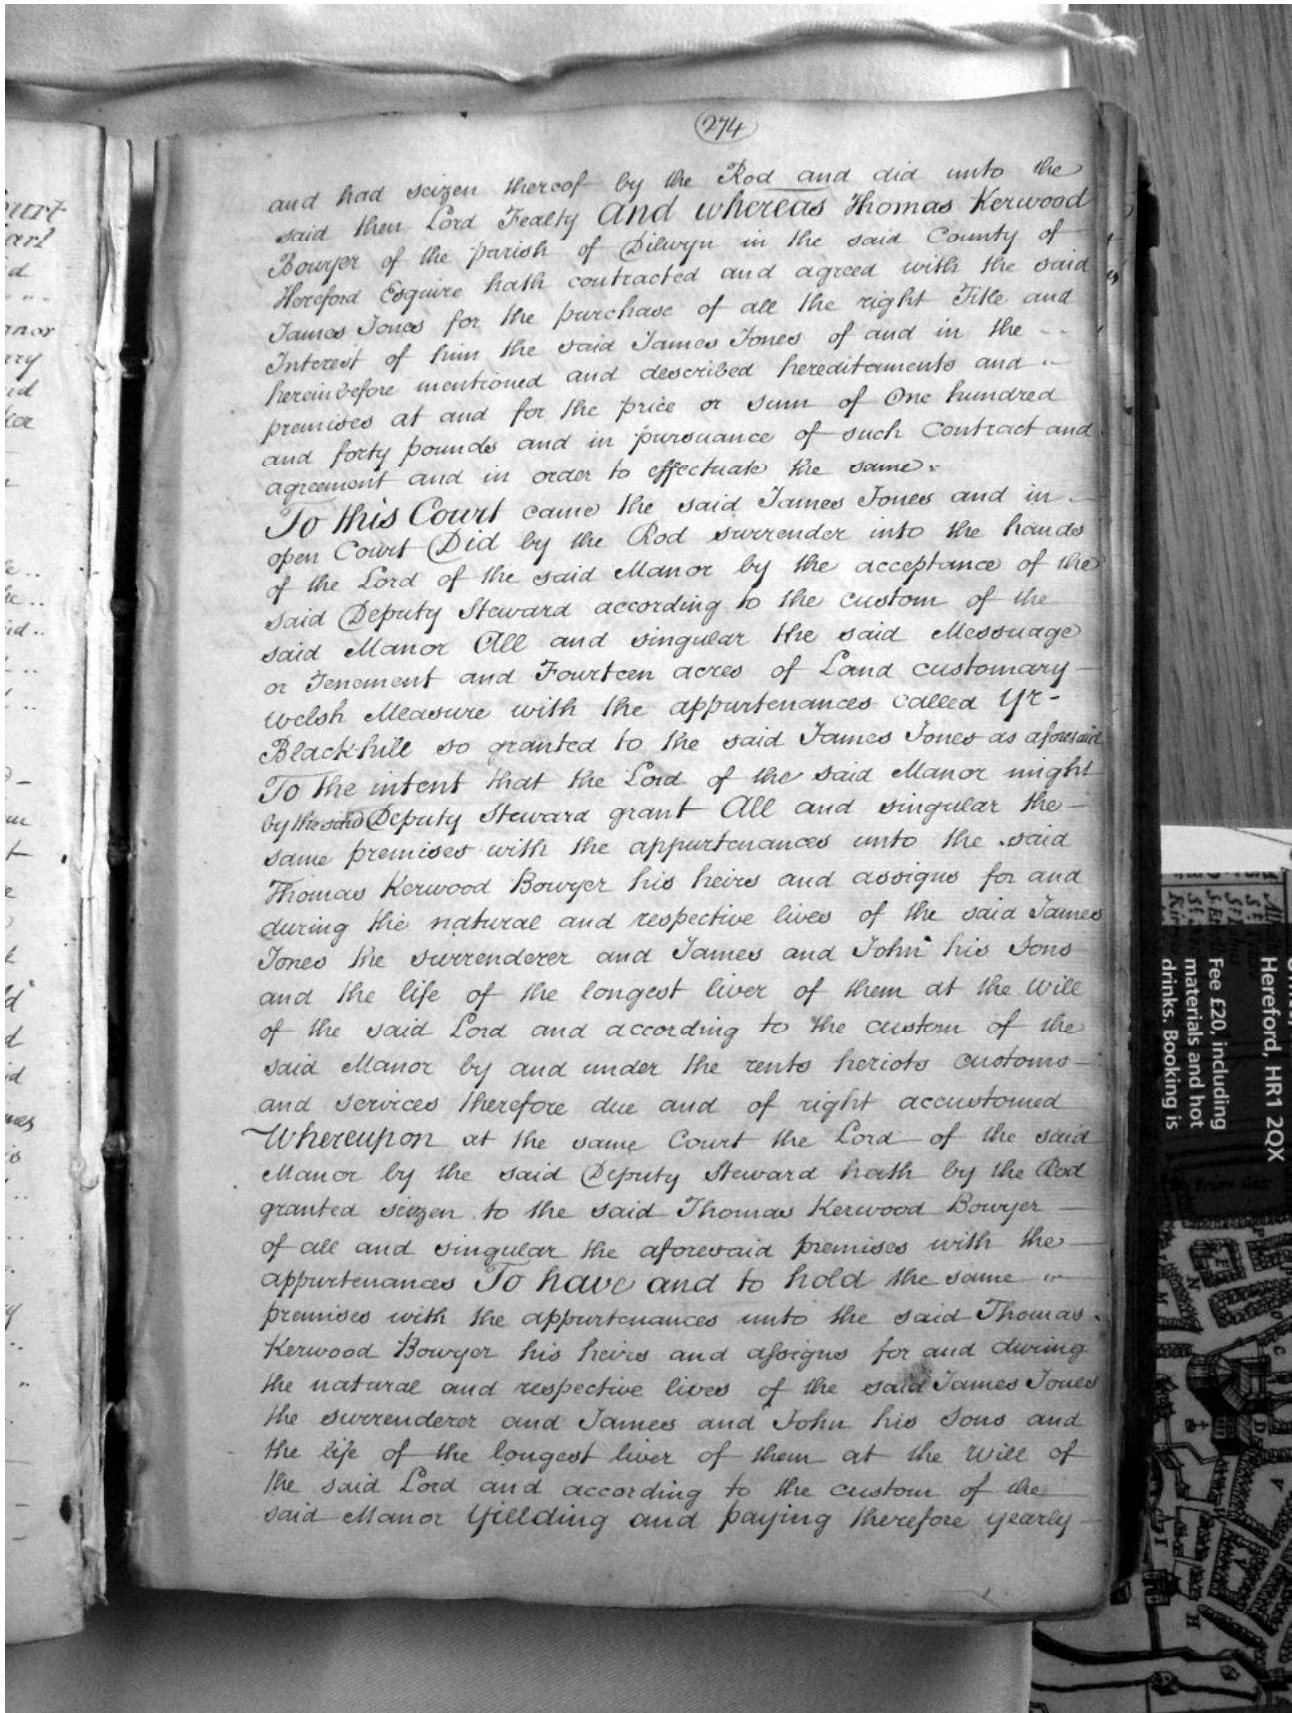 274
and had seizen thereof by the Rod and did unto the
said then Lord Fealty And whereas Thomas Kerwood
Bowyer of the parish of Dilwyn in the said County of
Hereford Esquire hath contracted and agreed with the said
James Jones for the purchase of all the right Title and
Interest of him the said James Jones of and in the
hereinbefore mentioned and described hereditaments and
premises at and for the price or sum of One hundred
and forty pounds and in pursuance of such Contract and
agreement and in order to effectuate the same.
To this Court came the said James Jones and in
open Court Did by the Rod surrender into the hands
of the Lord of the said Manor by the acceptance of the
said Deputy Steward according to the custom of the
said Manor All and singular the said Messuage
or Tenement and Fourteen acres of Land customary
Welsh Measure with the appurtenances called Yr-
Black-hill so granted to the said James Jones as aforesaid
To the intent that the Lord of the said Manor might
by the said Deputy Steward grant All and singular the
same premises with the appurtenances unto the said
Thomas Kerwood Bowyer his heirs and assigns for and
during the natural and respective lives of the said James
Jones the surrenderer and James and John his Sons
and the life of the longest liver of them at the Will
of the said Lord and according to the custom of the
said Manor by and under the rents heriots customs
and services therefore due and of right accustomed
Whereupon at the same Court the Lord of the said
Manor by the said Deputy Steward hath by the Rod
granted seizen to the said Thomas Kerwood Bowyer
of all and singular the aforesaid premises with the
appurtenances To have and to hold the same
premises with the appurtenances unto the said Thomas
Kerwood Bowyer his heirs and assigns for and during
the natural and respective lives of the said James Jones
the surrenderer and James and John his Sons and
the life of the longest liver of them at the Will of
the said Lord and according to the custom of the
said Manor Yiellding and paying therefore yearly
Hereford, HR1 2QX
Fee £20, including
materials and hot
drinks. Booking is